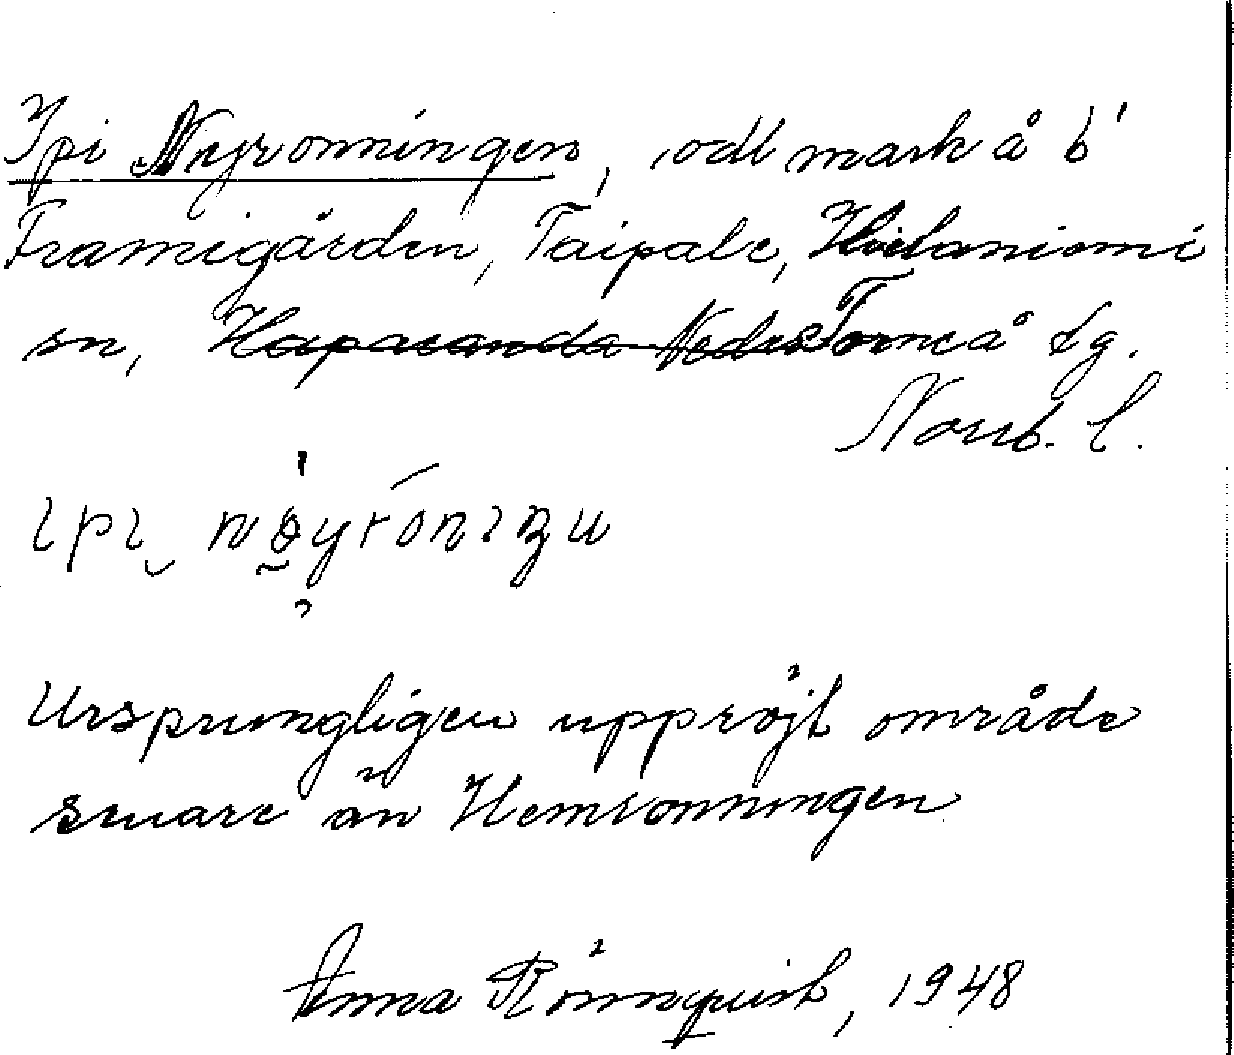 Ipi Nyronningen, odl mark å b'
Framigården, Taipale, Hietaniemi
sn, Haparanda Neder Torneå tg.
Norrb. l.
Ursprungligen uppröjt område
senare än Hemronningen
Anna Rönnquist, 1948